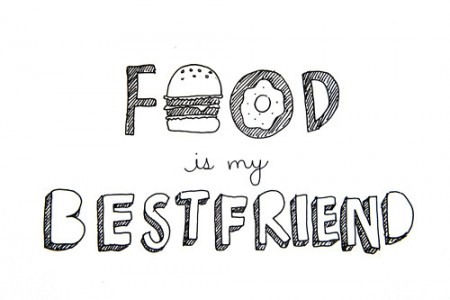 FOOD
is my
BESTFRIEND